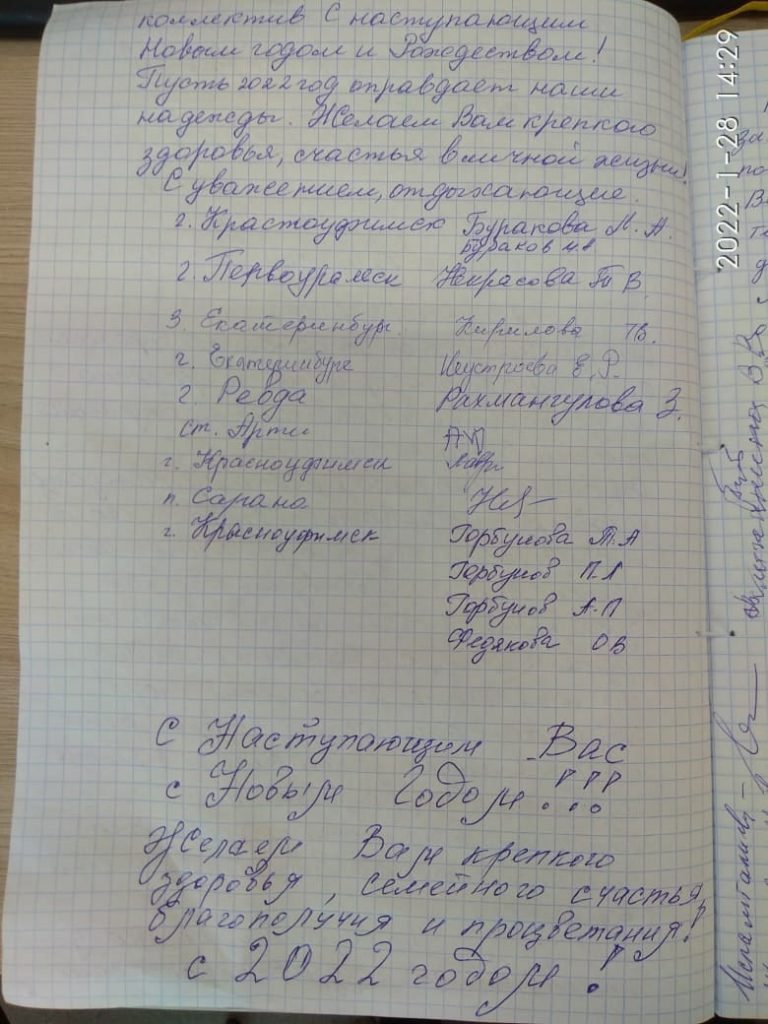 коллектив с наступающим
Новым годом и Рождеством!
Пусть 2022 год оправдает наши
надежды. Желаем Вам крепкого
здоровья, счастья в личной жизни!
С уважением, отдыхающие.
г. Красноуфимск Буракова М. А.
Бураков
г. Первоуральск Некрасова Т В.
г. Екатеринбург. Кирилова ТВ.
г. Екатеринбург Неустроева Е. Р.
г Ревда Рахмангулова З.
ст. Арти
г. Красноуфимск
п. Сарана
г. Красноуфимск Горбунова Т. А
Горбунов П. А
Горбунов А. П
Федякова О В
С Наступающим Вас
с Новым Годом!!!
Желаем Вам крепкого
здоровья, семейного счастья,
благополучия и процветания!
с 2022 годом!
2022-1-28 14:29